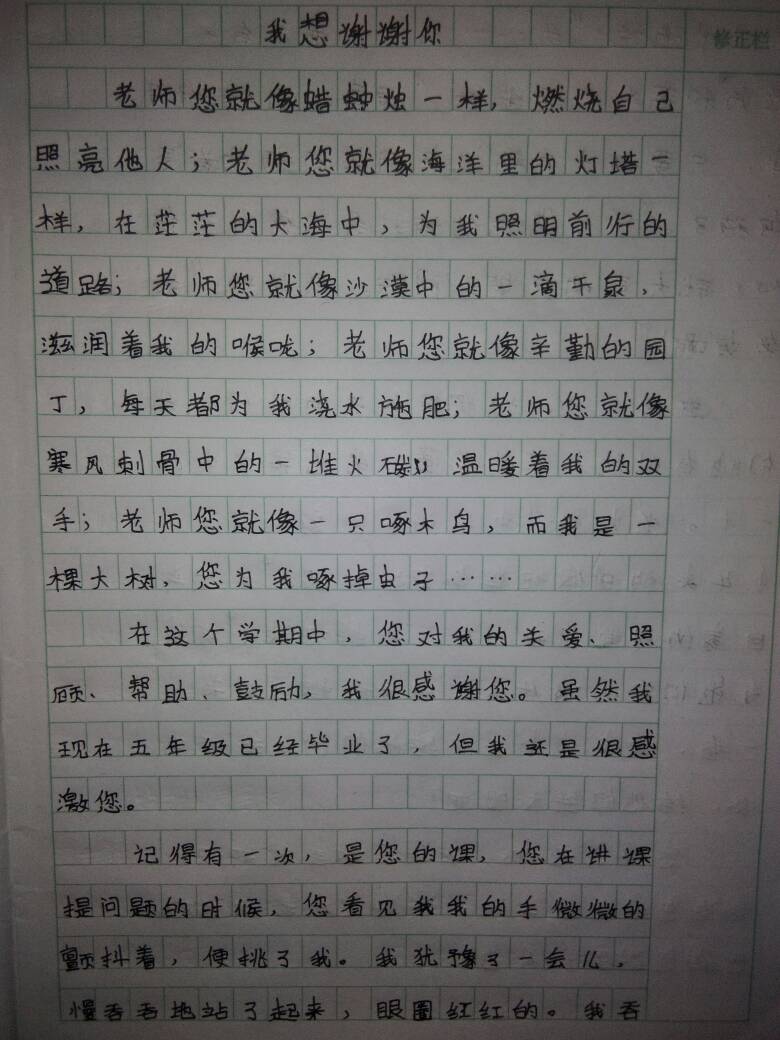 我想谢谢你
修正栏
老师您就像蜡蚀烛一样,燃烧自己
照亮他人;老师您就像海洋里的灯塔一
样,在茫茫的大海中,为我照明前行的
道路;老师您就像沙漠中的一滴干泉,
滋润着我的喉咙;老师您就像辛勤的园
丁,每天都为我浇水施肥;老师您就像
寒风刺骨中的一堆火碳,温暖着我的双
手;老师您就像一只啄木鸟,而我是一
棵大树,您为我啄掉虫子……
在这个学期中,您对我的关爱、照
顾、帮助、鼓励,我很感谢您。虽然我
现在五年级已经毕业了,但我还是很感
激您。
记得有一次,是您的课,您在讲课
提问题的时候,您看见我我的手微微的
颤抖着,便挑了我。我犹豫了一会儿,
慢吞吞地站了起来,眼圈红红的。我吞